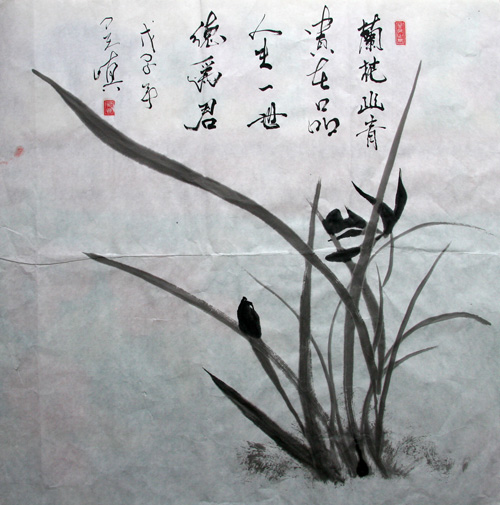 蘭花幽香
貴在品
人生一世
德爲君
戊子年